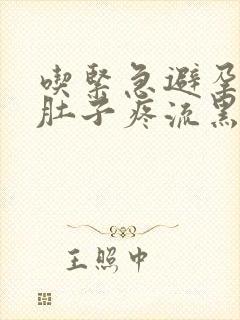 喫緊急避孕
肚子疼流黑
王照中